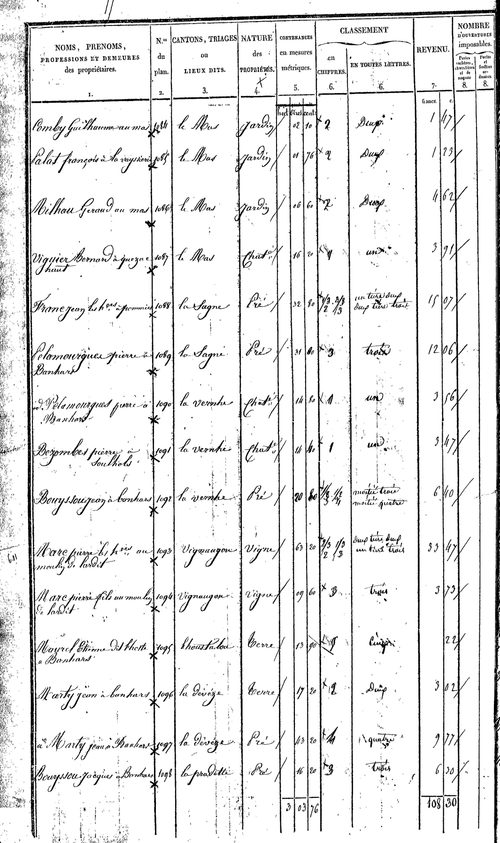 NOMS, PRENOMS, PROFESSIONS ET DEMEURES des propriétaires. | N.os du plan. | CANTONS, TRIAGES ou LIEUX DITS. | NATURE des PROPRIÉTÉS. | CONTENANCES en mesures métriques. | CLASSEMENT en CHIFFRES. | CLASSEMENT EN TOUTES LETTRES. | REVENU. | NOMBRE D'OUVERTURES imposables.
1. 2. 3. 4. 5. 6. 6. 7. 8. 8.
francs. c.
Comby Guilhaume au mas 1084 le Mas Jardin 02 10 2 Deux 1 47
Palat françois à 1085 le Mas Jardin 01 76 2 Deux 1 23
Milhau Geraud au mas 1086 le Mas Jardin 06 60 2 Deux 4 62
Viguier Bernard à 1087 le Mas Chat. 16 20 1 un 3 91
haut
Franc jean les h.res à 1088 la Sagne Pré 32 80 2/3 2 1/3 3 un tiers deux deux tiers trois 15 07
Pelamourgues pierre à 1089 la Sagne Pré 31 80 3 trois 12 06
Banhars
d. Pelamourgues pierre à 1090 la vernhe Chat. 14 80 1 un 3 56
Banhars
Bezombes pierre à 1091 la vernhe Chat. 14 40 1 un 3 47
Bouyssou jean à banhars 1092 la vernhe Pré 20 80 1/2 3 1/2 4 moitié trois moitié quatre 6 40
Marc pierre les h.res au 1093 Vignaugon Vigne 63 20 2/3 2 1/3 3 deux tiers deux un tiers trois 33 47
moulin de lardit
Marc pierre fils au moulin 1094 Vignaugon Vigne 09 60 3 trois 3 73
de lardit
Mayrel Etienne 1095 Terre 13 90 5 Cinq 22
à Banhars
Marty jean à banhars 1096 la devèze Terre 17 20 2 Deux 3 02
d. Marty jean à Banhars 1097 la devèze Pré 63 4 quatre 9 77
Bouyssou jacques à Banhars 1098 la pradelle Pré 16 20 3 trois 6 30
3 03 76 108 30